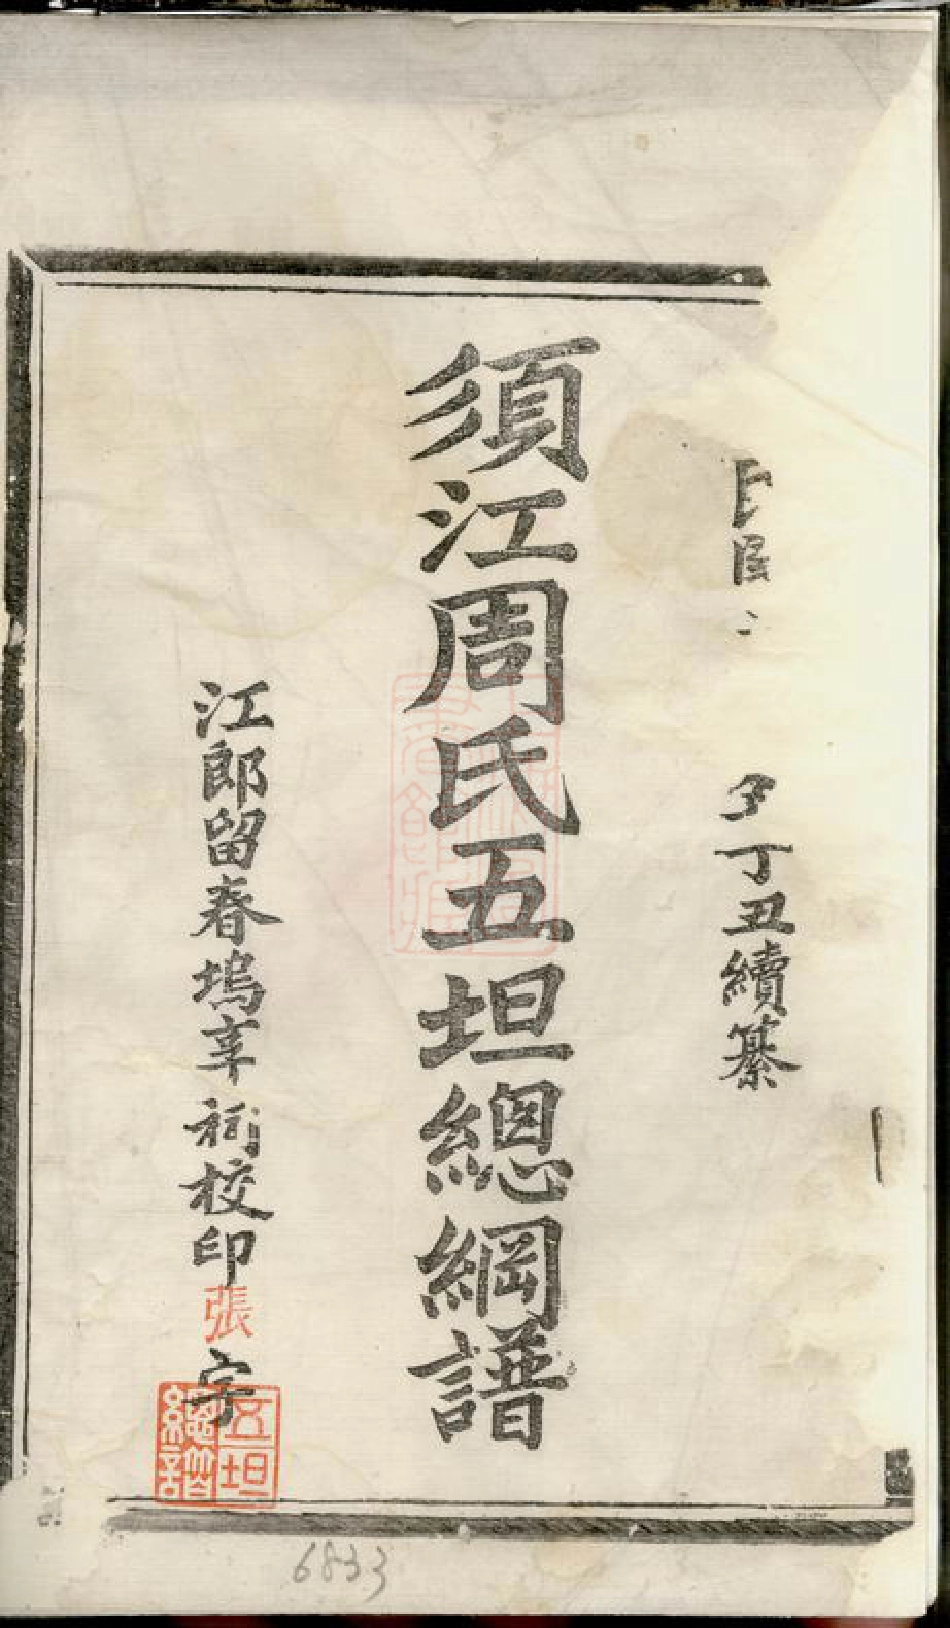 民國
丁丑續纂
須江周氏五坦總綱譜
江郎留春塢辜祠校印張字
五坦總譜
6833